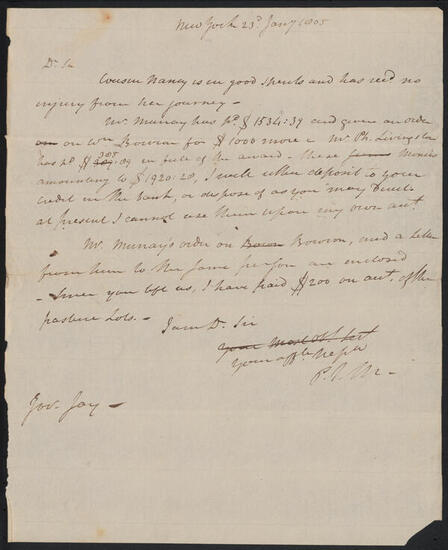 New York 23d. Jany 1805
Dr. Sir
Cousin Nancy is in good spirits and has recd no
injury from her journey -
Mr. Murray has pd. $ 1534:39 and given an order
on on Wm Bowron for $ 1000 more & Mr. Ph. Livingston
has pd $ 385:89 in full of the award - These Monies
amounting to $ 1920:28, I will either deposit to your
credit in the Bank, or dispose of as you may direct
at present I cannot use them upon my own act.
Mr. Murray's order on Bowron, and a letter
from him to the same person are enclosed
- Since you left us, I have paid $ 200 on act. of the
pasture Lots. -
I am Dr. Sir
Your Most Obt. Sert
Your affte. Nephw
P. J. M. -
Gov. Jay -